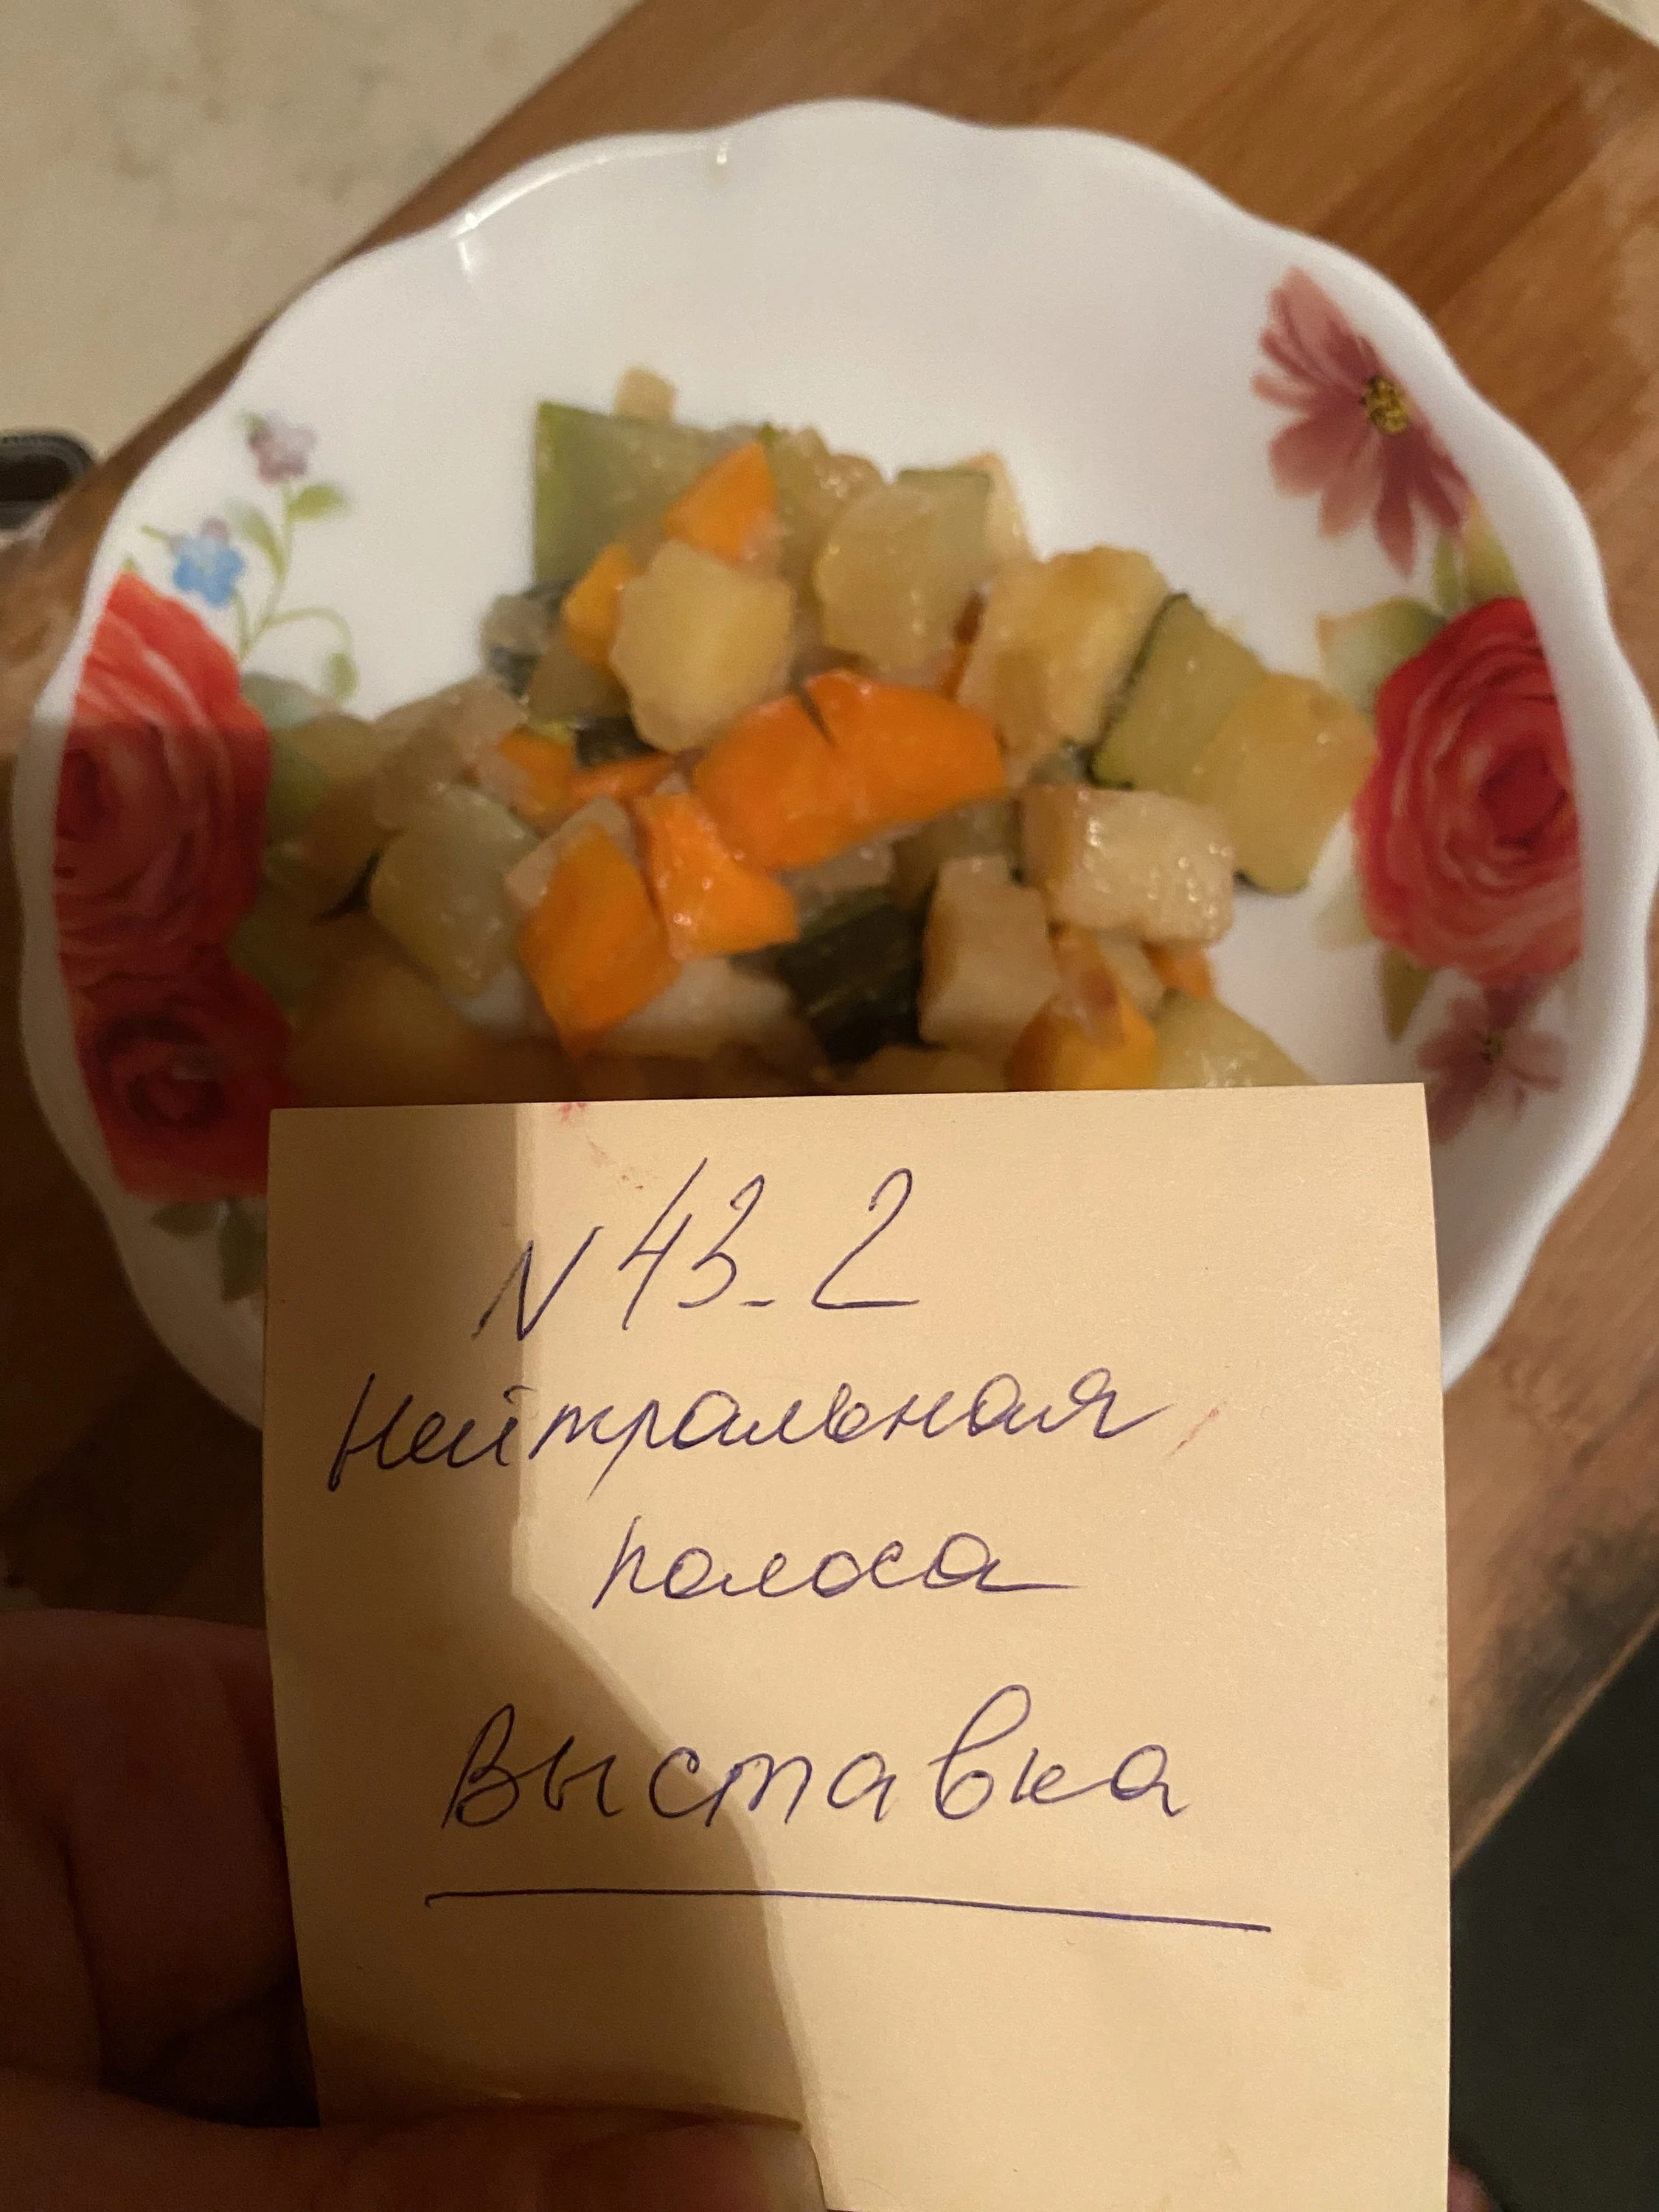 N 43-2
Нейтральная
полоса
Выставка